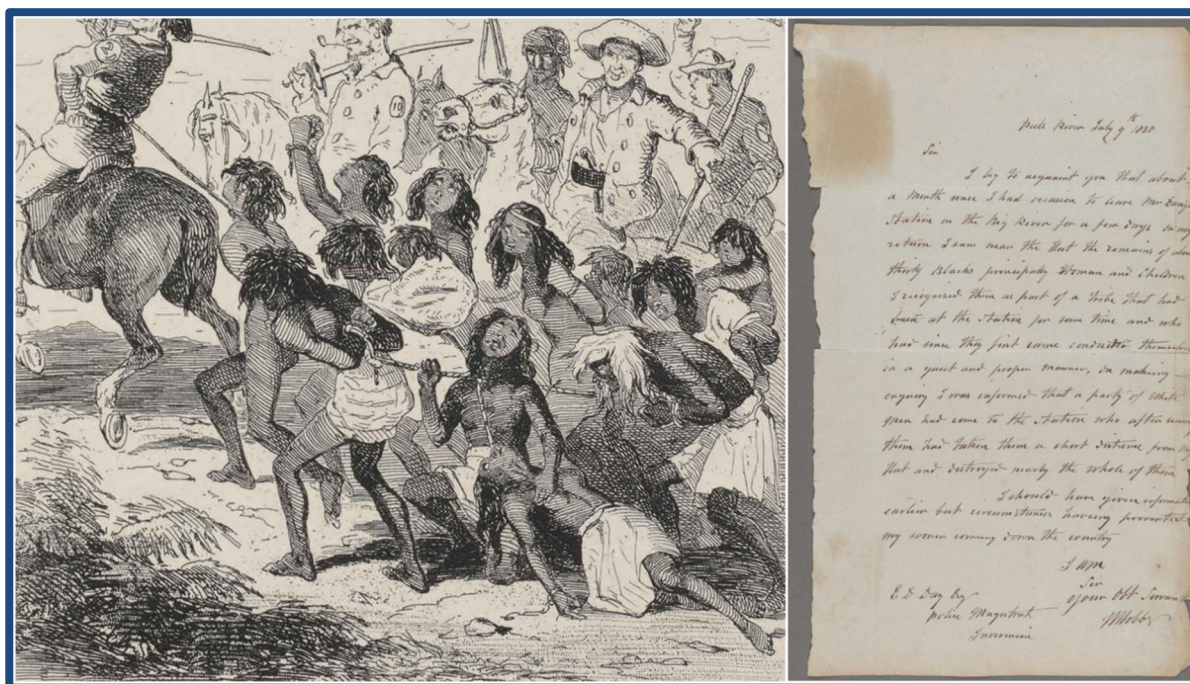 2
10
Peel River July 9th 1838
Sir
I beg to acquaint you that about
a Month since I had occasion to leave Mr Dang
Station on the Big River for a few days on my
return I saw near the Hut the remains of abou
thirty Blacks principally Woman and Children
I recognized them as part of a tribe that had
been at the Station for some time and who
had since they first came conducted themselves
in a quiet and proper manner, on making
enquiry I was informed that a party of white
men had come to the Station who after
them had taken them a short distance from my
Hut and destroyed nearly the whole of them
I should have given informatio
earlier but circumstances having prevented
my sooner coming down the country
I am
Sir
Your Obt Servant
W Hobbs
E D Day Esq
Police Magistrate
Invermein